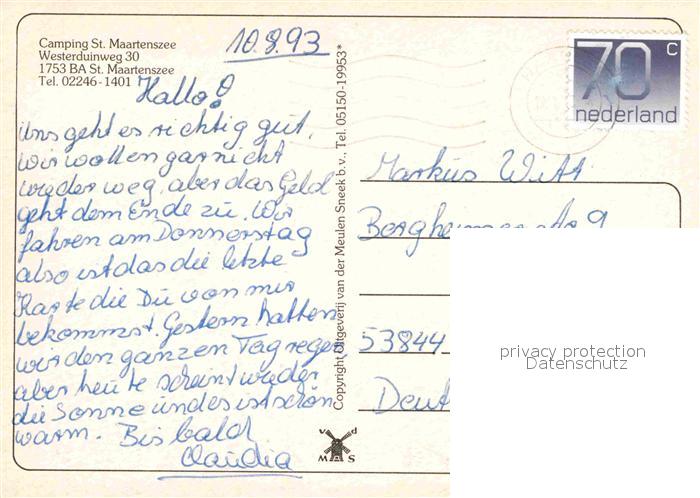 Camping St. Maartenszee
Westerduinweg 30
1753 BA St. Maartenszee
Tel. 02246-1401
10.8.93
Hallo!
Uns geht es richtig gut,
wir wollen garnicht
wieder weg, aber das Geld
geht dem Ende zu. Wir
fahren am Donnerstag
also ist das die letzte
Karte die Du von mir
bekommst. Gestern hatten
wir den ganzen Tag regen
aber heute scheint wieder
die Sonne und es ist schön
warm. Bis bald
Claudia
Copyright Uitgeverij van der Meulen Sneek b.v., Tel. 05150-19953*
vd
MAS
70 c
nederland
Markus Witt
Bergheimer 9
53844
Deut
privacy protection
Datenschutz